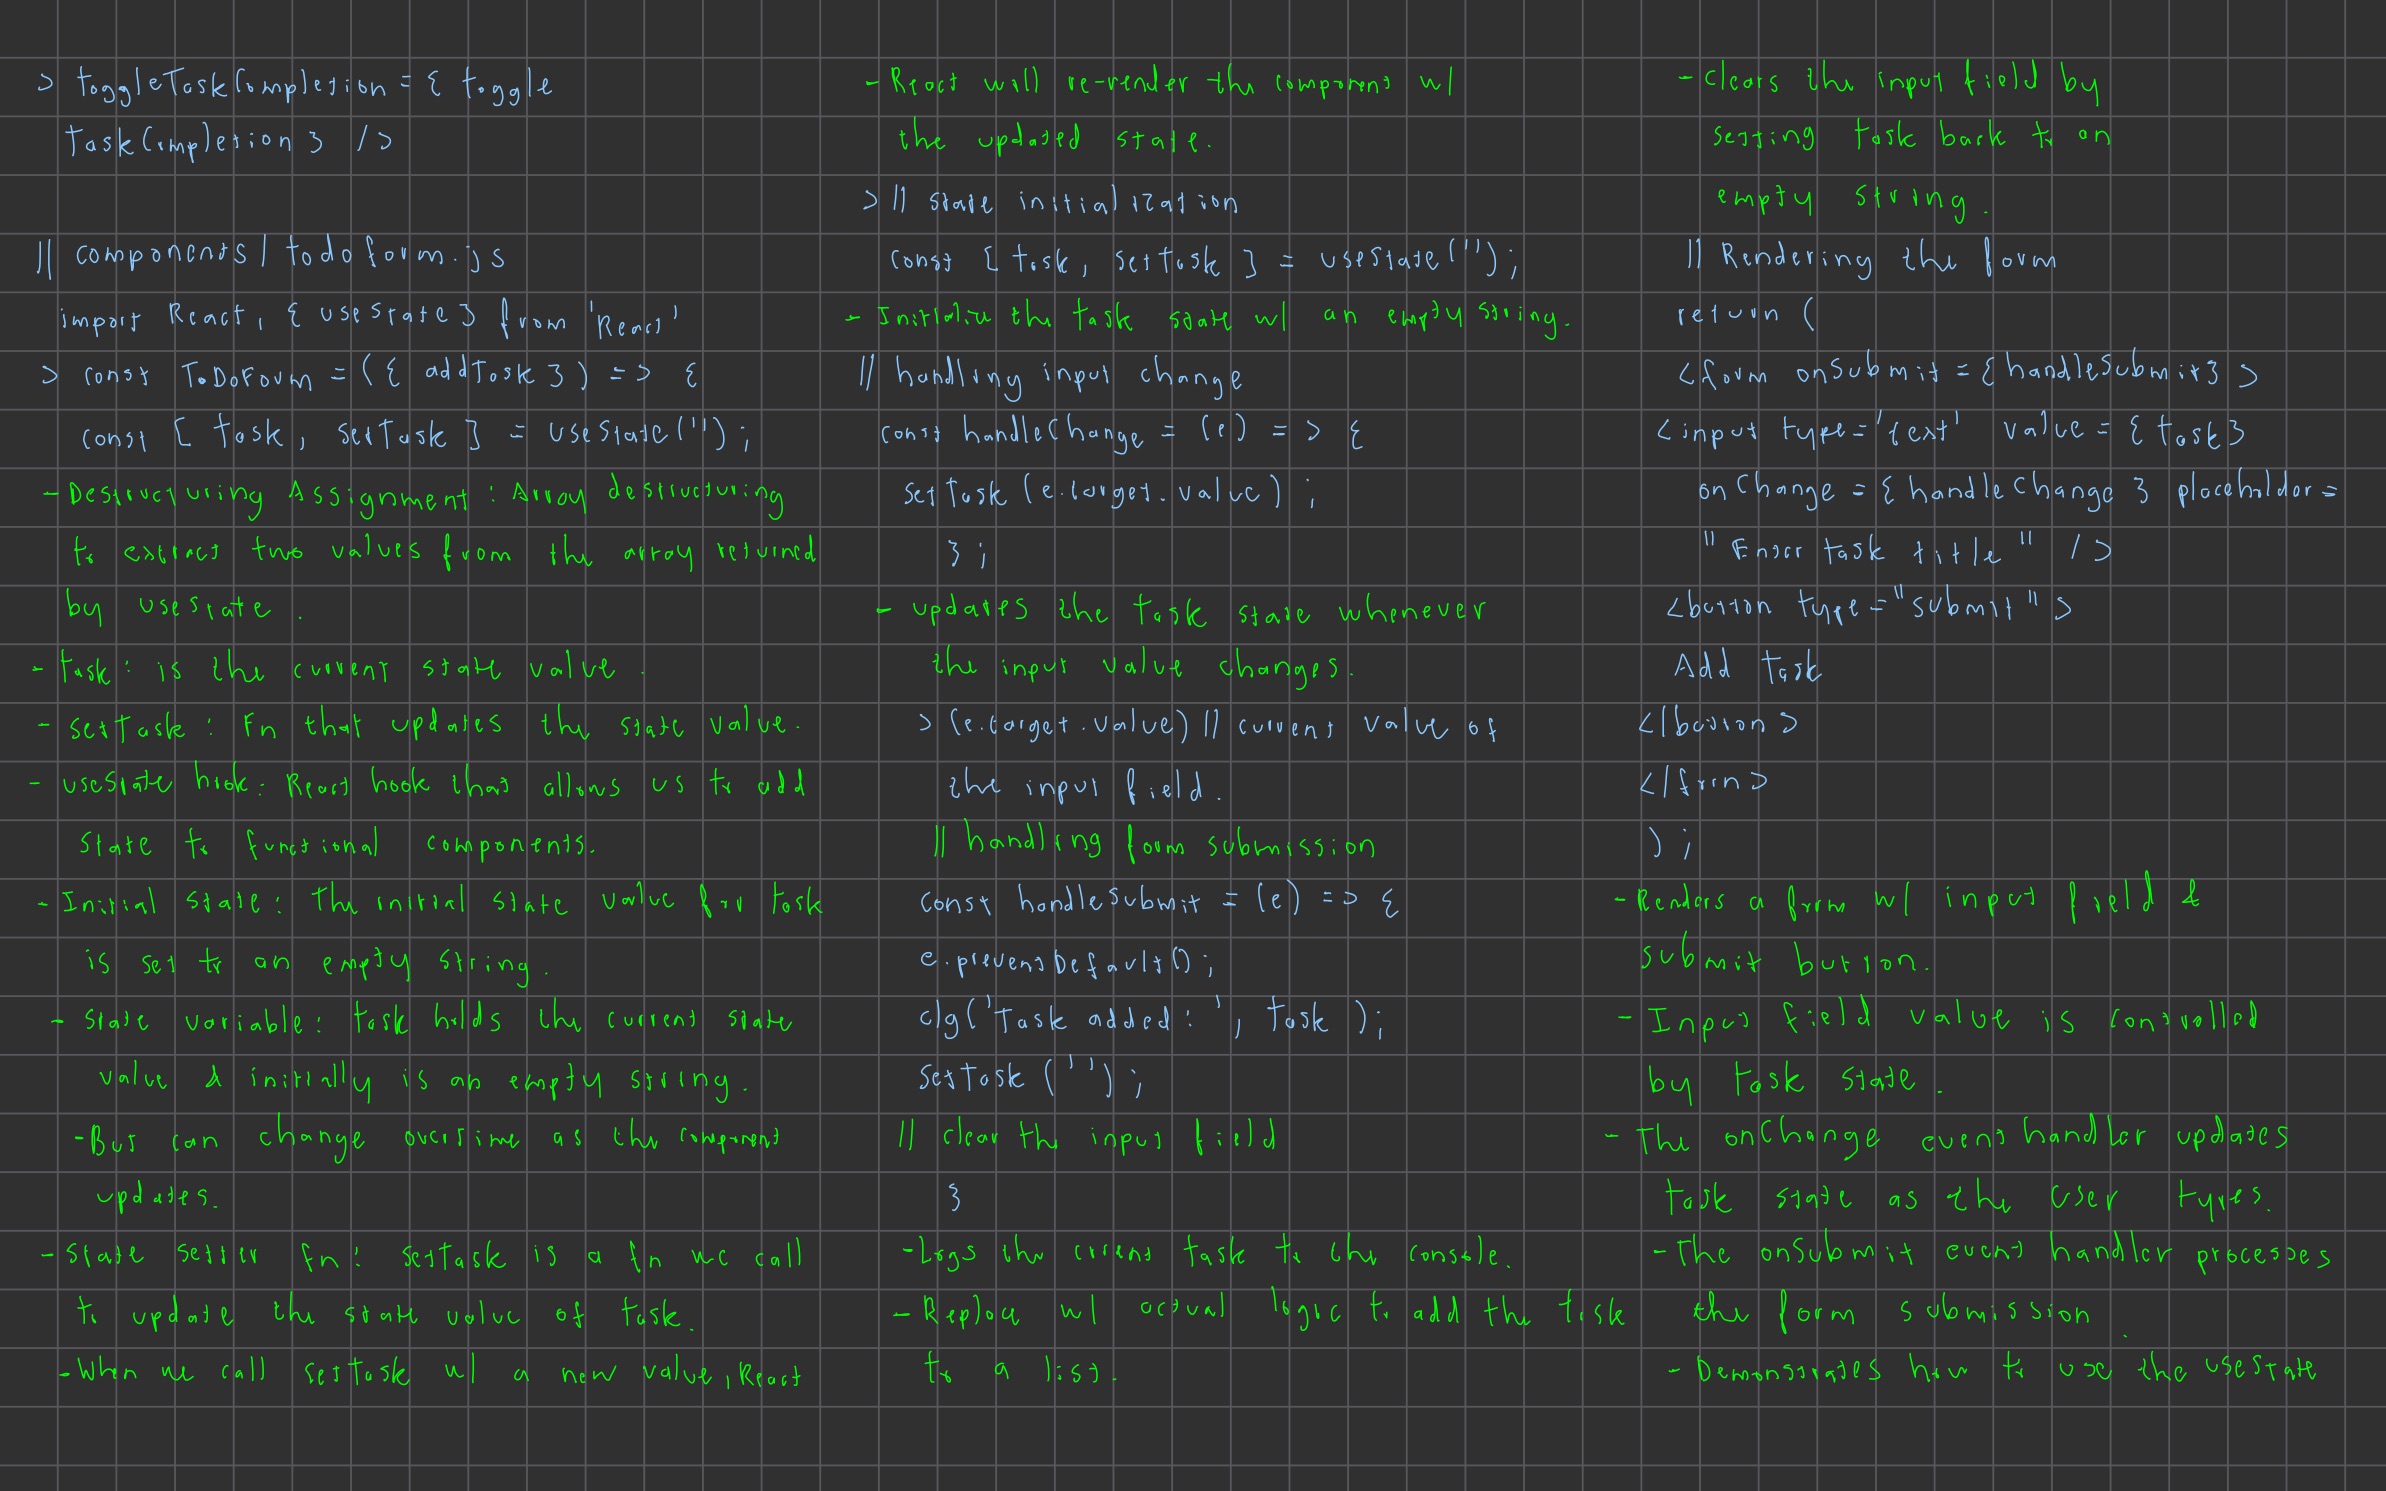 > toggleTaskCompletion = { toggle
TaskCompletion } />
// components/todoform.js
import React, { useState } from 'React'
> const ToDoForm = ({ addTask }) => {
const [ task, setTask ] = useState('');
- Destructuring Assignment: Array destructuring
to extract two values from the array returned
by useState.
- task: is the current state value.
- setTask: Fn that updates the state value.
- useState hook: React hook that allows us to add
state to functional components.
- Initial state: the initial state value for task
is set to an empty string.
- State variable: task holds the current state
value & initially is an empty string.
- But can change overtime as the component
updates.
- State setter fn: setTask is a fn we call
to update the state value of task.
- When we call setTask w/ a new value, React
- React will re-render the component w/
the updated state.
> // state initialization
const [ task, setTask ] = useState('');
- Initialize the task state w/ an empty string.
// handling input change
const handleChange = (e) => {
setTask (e.target.value) ;
} ;
- updates the task state whenever
the input value changes.
> (e.target.value) // current value of
the input field.
// handling form submission
const handleSubmit = (e) => {
e.preventDefault();
clg('Task added: ', task );
setTask ('') ;
// clear the input field
}
- Logs the crrent task to the console.
- Replace w/ actual logic to add the task
to a list.
- Clears the input field by
setting task back to an
empty string.
// Rendering the form
return (
<form onSubmit = {handleSubmit} >
<input type='text' value = { task}
onChange = { handleChange } placeholder =
" Enter task title " />
<button type="submit" >
Add Task
</button>
</form>
) ;
- Renders a form w/ input field &
submit button.
- Input field value is controlled
by task state.
- The onChange event handler updates
task state as the user types.
- The onSubmit event handler processes
the form submission.
- Demonstrates how to use the useState